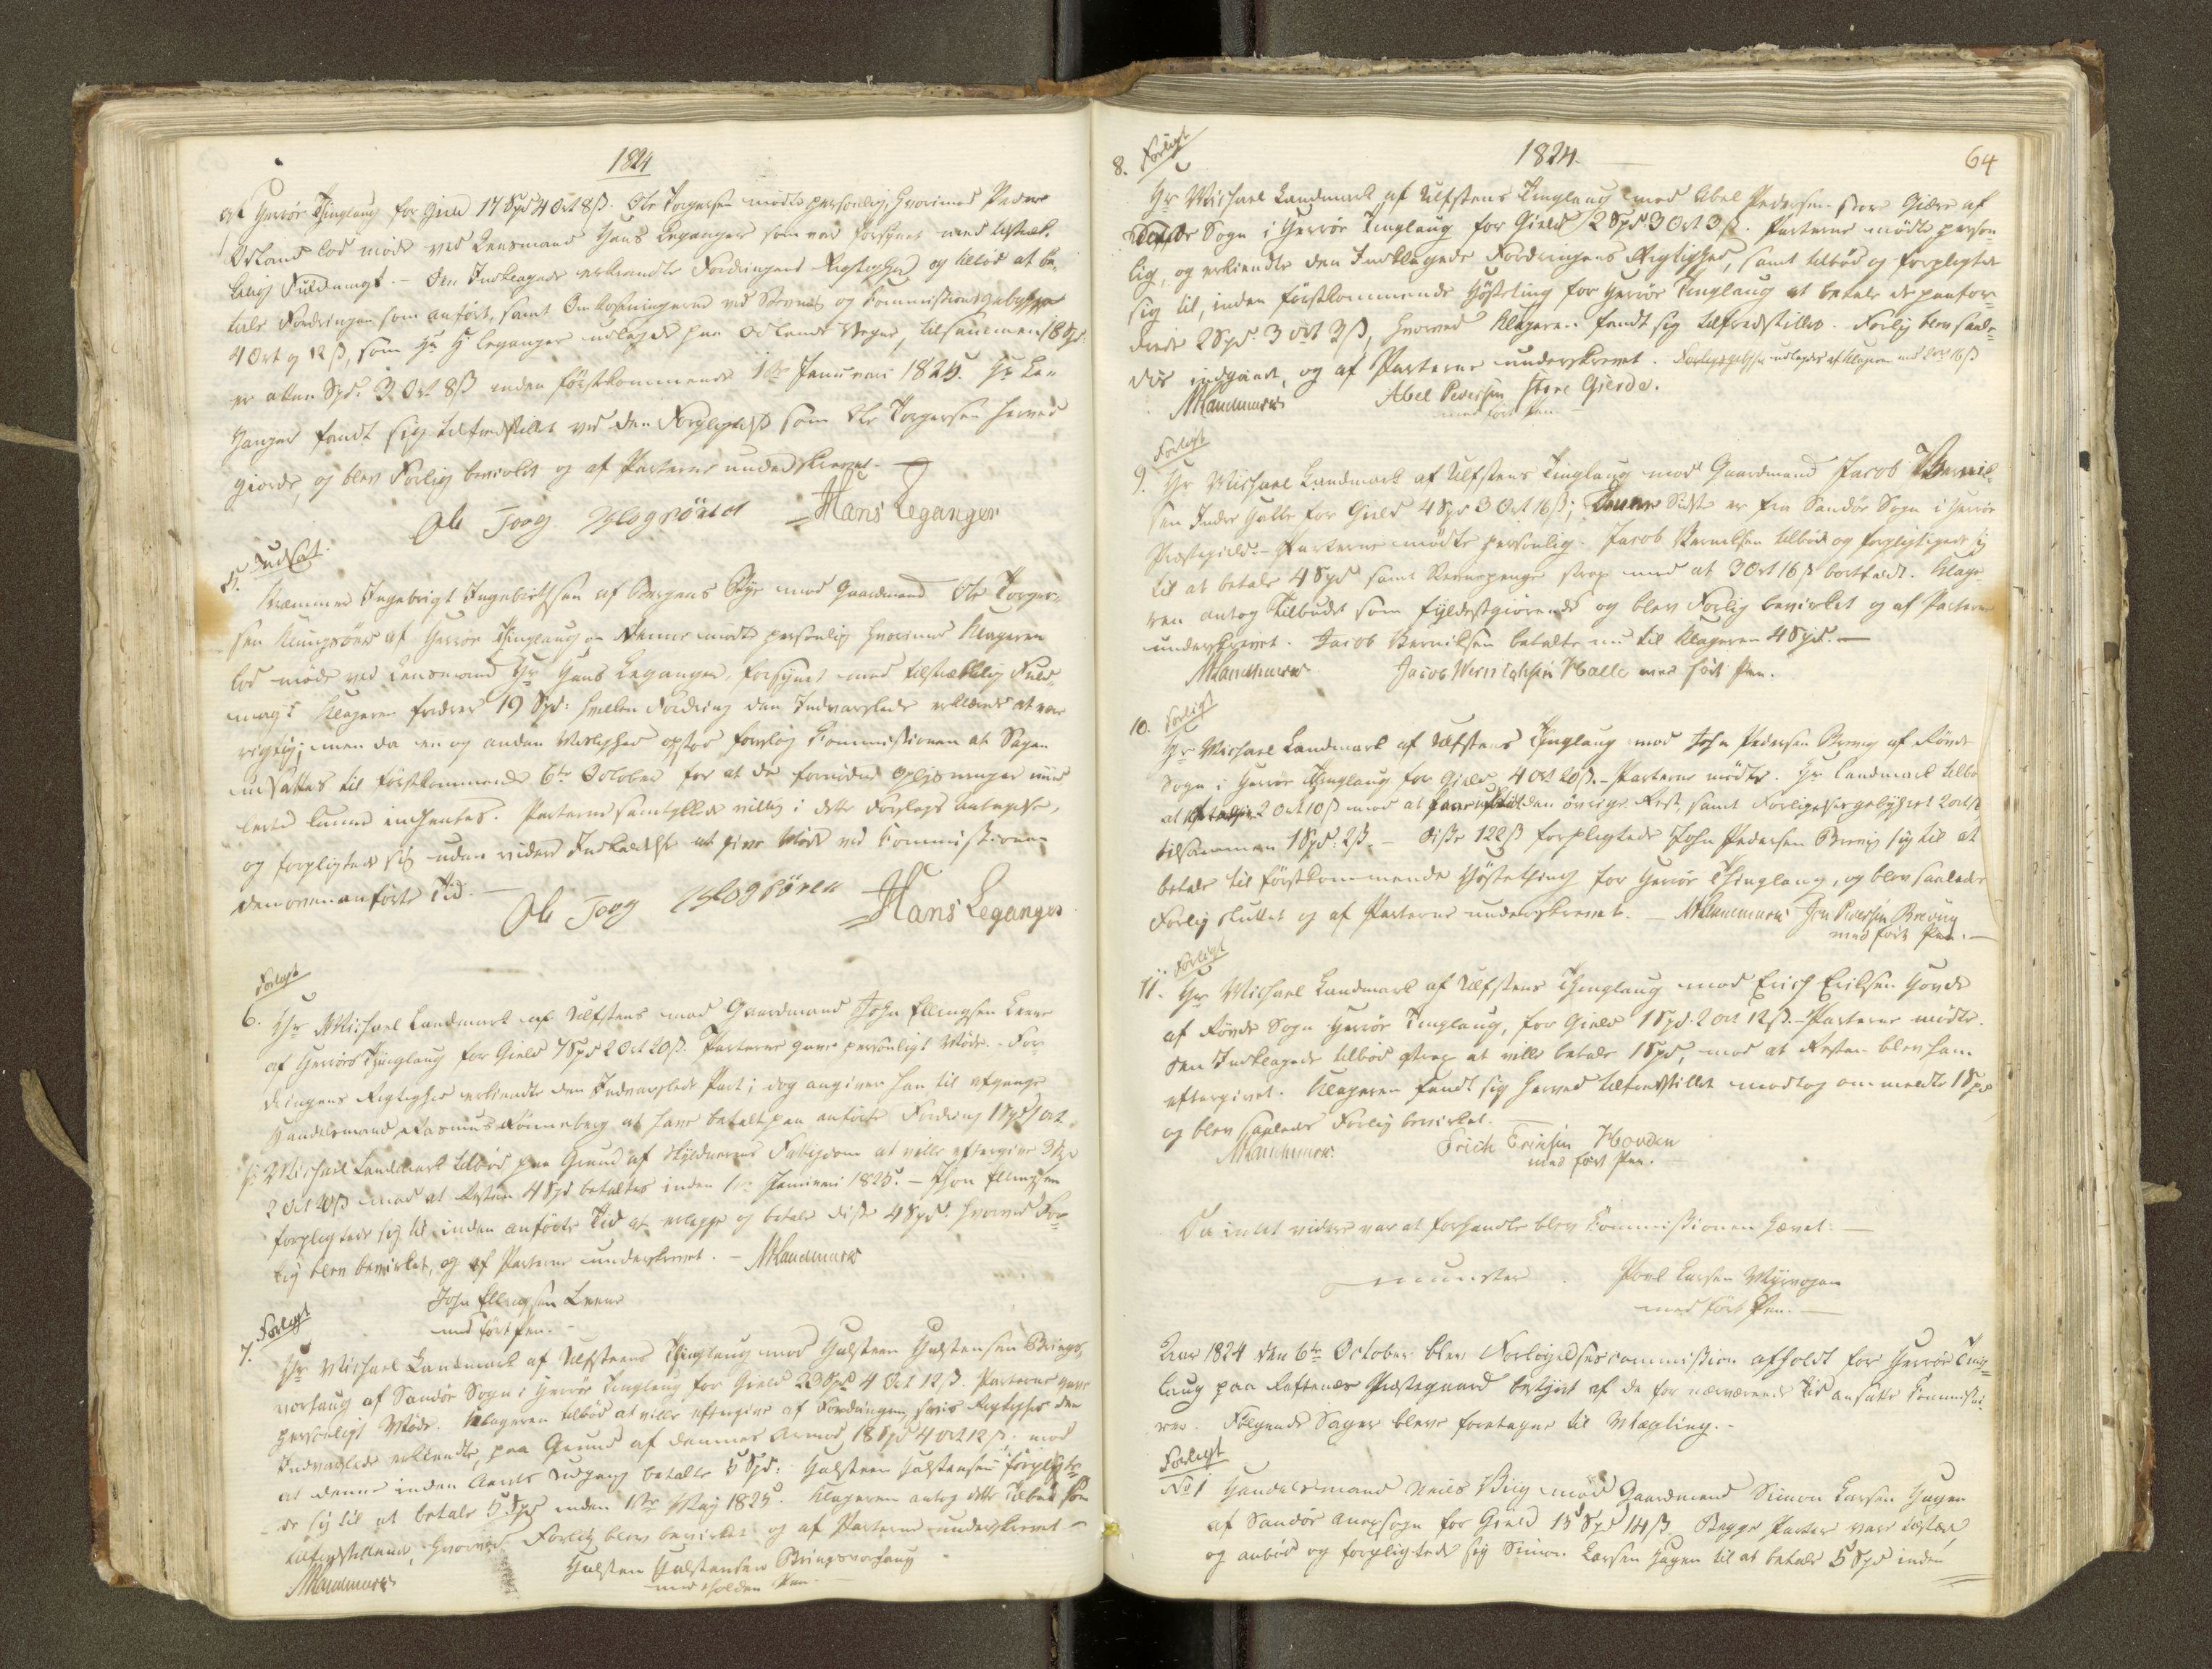 1824
af Herröe Thinglaug for Gield 17 Spd 4 Ort 8 ß. Ole Torgersen mödte personlig, hvorimod Peder
Orland lod möde ved Lensmand Hans Leganger som var forsynet med tilstræk-
kelig Fuldmagt. — Den Indklagede erkiendte Fordringens Rigtighed og tilböd at be-
tale Fordringen som anfört, samt Omkostningerne ved Stevnet og Kommissionsgebyhr
4 Ort og 12 ß, som Hr H. Leganger udlagde paa Orlands Vegne, tilsammen 18 Spd
er atten Spd. 3 Ort 8 ß inden förstkommende 1te Januari 1825. Hr Le-
ganger fandt sig tilfredstillet ved den Forpligtelse som Ole Torgersen herved
giorde, og blev Forlig bevirket og af Parterne underskrevet.
Ole Torg Klogsöret Hans Leganger
5. Udsat.
Kræmmer Ingebrigt Ingebrigtsen af Bergens Bye mod Gaardmand Ole Torger-
sen Klungsöret af Herröe Thinglaug. Denne mödte personlig hvorimod Klageren
lod möde ved Lensmand Hr Hans Leganger, forsynet med tilstrækkelig Fuld-
magt. Klageren fordrer 19 Spd: hvilken Fordring den Indvarslede erklærede at være
rigtig; men da en og anden Uvished opstod foreslog Kommissionen at Sagen
udsættes til förstkommende 6te October for at de fornödne Oplysninger imid-
lertid kunne indhentes. Parterne samtykkede villig i dette Forslags Antagelse,
og forpligtede sig uden videre Indkaldelse at give Möde ved Kommissionen
den ovenanförte Tid. —
Ole Torg Klogsören Hans Leganger
Forligt
6. Hr Michael Landmark af Ulfstens mod Gaardmand John Ellingsen Leene
af Herröes Thinglaug for Gield 7 Spd 2 Ort 20 ß. Parterne gave personligt Möde. - For-
dringens Rigtighed erkiendte den Indvarslede Part; dog angiver han til afgangne
Handelsmand Rasmus Rönneberg at have betalt paa anförte Fordring 1 Spd 1 Ort
Hr Michael Landmark tilböd paa Grund af Skyldnerens Fattigdom at ville eftergive 3 Spd
2 Ort 20 ß mod at Resten 4 Spd betaltes inden 1te Januari 1825. — John Ellingsen
forpligtede sig til inden anförte Tid at erlægge og betale disse 4 Spd. hvorved For-
lig blev bevirket, og af Parterne underskrevet. — MLandmark
John Ellingsen Leene
med fört Pen.
7. Forligt
Hr Michael Landmark af Ulfsteens Thinglaug mod Halsteen Halstensen Brings-
vorhaug af Sandöe Sogn i Herröe Tinglaug for Gield 23 Spd 4 Ort 12 ß. Parterne gave
personligt Möde. Klageren tilböd at ville eftergive af Fordringen, hvis Rigtighed den
Indvarslede erkiendte, paa Grund af dennes Armod 18 Spd 4 Ort 12 ß. mod
at denne inden Aarets Udgang betalte 5 Spd: Halsteen Halstensen forpligte-
de sig til at betale 5 Spd inden 1te May 1825. Klageren antog dette Tilbud som
tilfredstillende, hvorved Forlig blev bevirket og af Parterne underskrevet —
MLandmark Halsten Halstensen Bringsvorhaug
med holden Pen.
1824.
64
8. Forligt
Hr Michael Landmark af Ulfstens Tinglaug mod Abel Pedersen store Giære af
Sogn i Herröe Tinglaug for Gield 2 Spd 3 Ort 3 ß. Parterne mödte person-
lig, og erkiendte den Indklagede Fordringens Rigtighed, samt tilböd og forpligtede
sig til, inden förstkommende Hösteting for Herröe Tinglaug at betale de paafor-
drede 2 Spd. 3 Ort 3 ß, hvorved Klageren fandt sig tilfredstillet. Forlig blev saale-
des indgaaet, og af Parterne underskrevet. udlagdes af Klageren med 16 ß
MLandmark Abel Pedersen store Gierde.
med fört Pen
Forligt
9. Hr Michael Landmark af Ulfstens Tinglaug mod Gaardmand Jacob Bernil-
sen Indre Halle for Gield 4 Spd 3 Ort 16 ß; Denne Sidste er fra Sandöe Sogn i Herröe
Præstegield. — Parterne mödte personlig. Jacob Bernilsen tilböd og forpligtigede sig
til at betale 4 Spd samt Stevnepenge strax mod at 3 Ort 16 ß bortfaldt. Klage-
ren antog Tilbudet som fyldestgiörende og blev Forlig bevirket og af Parterne
underskrevet. Jacob Bernilsen betalte nu til Klageren 4 Spd. —
MLandmark Jacob Halle med fört Pen.
10. Forligt
Hr Michael Landmark af Ulfstens Thinglaug mod John Pedersen Brevig af Rövde
Sogn i Herröe Thinglaug for Gield 4 Ort 20 ß. — Parterne mödte. Hr Landmark tilböd
at 2 Ort 10 ß mod at den övrige Rest, samt Forligelsesgebyhret 2 Ort
tilsammen 1 Spd: 2 ß. — Disse 122 ß forpligtede John Pedersen Brevig sig til at
betale til förstkommende Höstething for Herröe Thinglaug, og blev saaledes
Forlig sluttet og af Parterne underskrevet. — MLandmark Jon Pedersen Brevig
med fört Pen. —
11. Forligt
Hr Michael Landmark af Ulfstens Thinglaug mod Erich Erichsen Hovde
af Rövde Sogn Herröe Tinglaug, for Gield 1 Spd. 2 Ort 12 ß. — Parterne mödte.
Den Indklagede tilböd strax at ville betale 1 Spd, mod at Resten blev ham
eftergivet. Klageren fandt sig herved tilfredstillet modtog ommeldte 1 Spd
og blev saaledes Forlig bevirket.
MLandmark. Erich Erichsen Hovden
med fört Pen.
Da intet videre var at forhandle blev Kommissionen hævet. —
Munster. Poul Larsen Myrvogen
med fört Pen. —
Aar 1824 den 6te October blev Forligelsescommission afholdt for Herröe Ting-
laug paa Raftenæs Præstegaard bestyret af de for nærværende Tid ansatte Kommissai-
rer. Fölgende Sager bleve foretagne til Mægling. -
Forligt
No 1 Handelsmand Neils Buig mod Gaardmand Simon Larsen Hagen
af Sandöe Anexsogn for Gield 15 Spd 14 ß. Begge Parter vare tilstæde
og anböd og forpligtede sig Simon Larsen Hagen til at betale 5 Spd inden